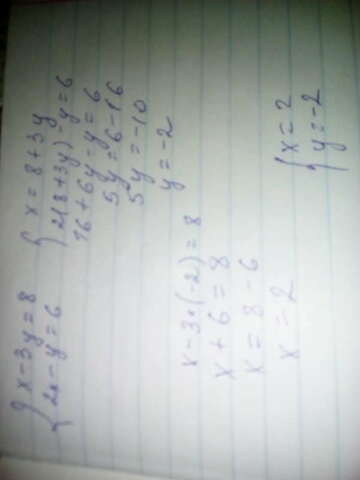 x - 3y = 8
2x - y = 6
x = 8 + 3y
2(8 + 3y) - y = 6
16 + 6y - y = 6
5y = 6 - 16
5y = -10
y = -2
x - 3 · (-2) = 8
x + 6 = 8
x = 8 - 6
x = 2
x = 2
y = -2